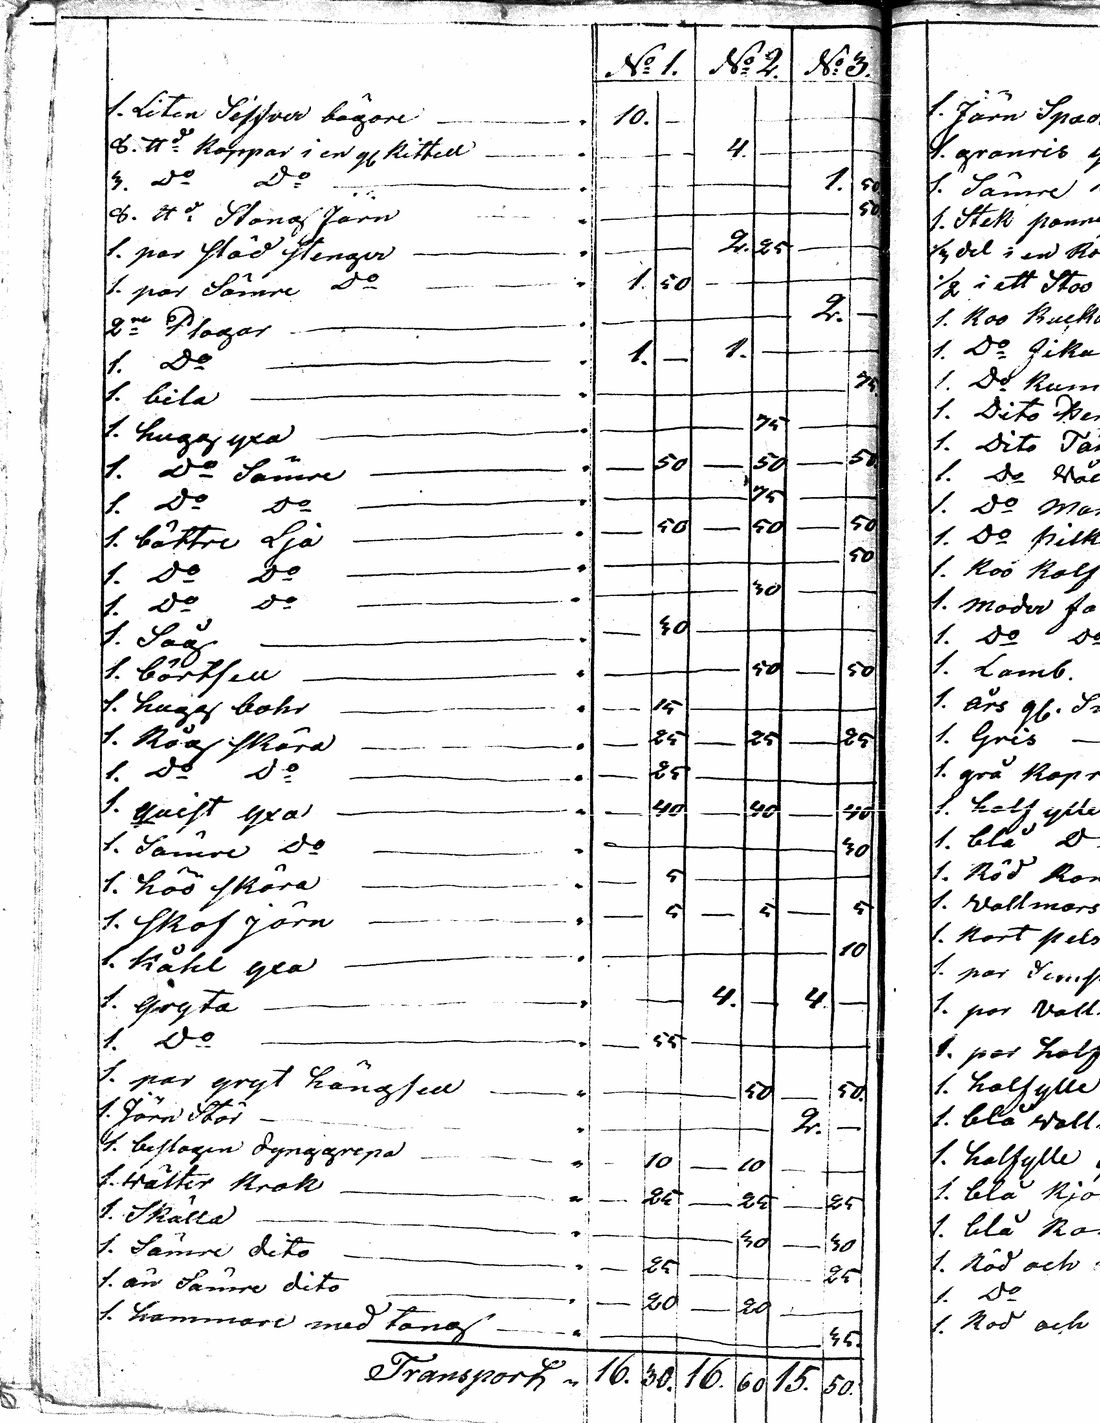 No 1. No 2. No 3.
1. Liten Silfver bägare 10. —
8. ℔d Koppar i en gl Kittell 4. —
3. Do Do 1. 50
8. ℔d Stang Järn 50
1. par Städ Stenger 2. 25
1. par Sämre Do 1. 50
2ne Plogar 2. —
1. Do 1. — 1. —
1. bila 75
1. hugg yxa 75
1. Do Sämre 50 50 50
1. Do Do 75
1. bättre Lja 50 50 50
1. Do Do 50
1. Do Do 30
1. Såg 30
1. börtsell 50 50
1. hugg bohr 15
1. Rög Skära 25 25 25
1. Do Do 25
1. quist yxa 40 40 40
1. Sämre Do 30
1. höö Skära 5
1. Skaf järn 5 5 5
1. Kåhl yxa 10
1. gryta 4. — 4. —
1. Do 55
1. par gryt hängsell 50 50.
1. Järn Stör 2. —
1. beslagen dynggrepa 10 10
1. wälter Krok 25 25 25
1. Skälla 30 30
1. Sämre dito 25 25
1. än Sämre dito 20 20
1. hammare med tang 35.
Transport 16. 30. 16. 60 15. 50.
1. Järn Spad
1. granris
1. Sämre
1. Stek pann
1/3 del i en Ko
1/2 i ett Stoo
1. Koo
1. Do
1. Do
1. Dito
1. Dito
1. Do
1. Do
1. Do
1. Koo Kalf
1. Moder
1. Do Do
1. Lamb.
1. års gl.
1. Gris —
1. grå
1. half ylle
1. blå D
1. Röd
1. Vallmars
1. Kort pels
1. par
1. par Vall
1. par half
1. halfylle
1. blå wall
1. halfylle
1. blå Kjo
1. blå
1. Röd och
1. Do
1. Röd och